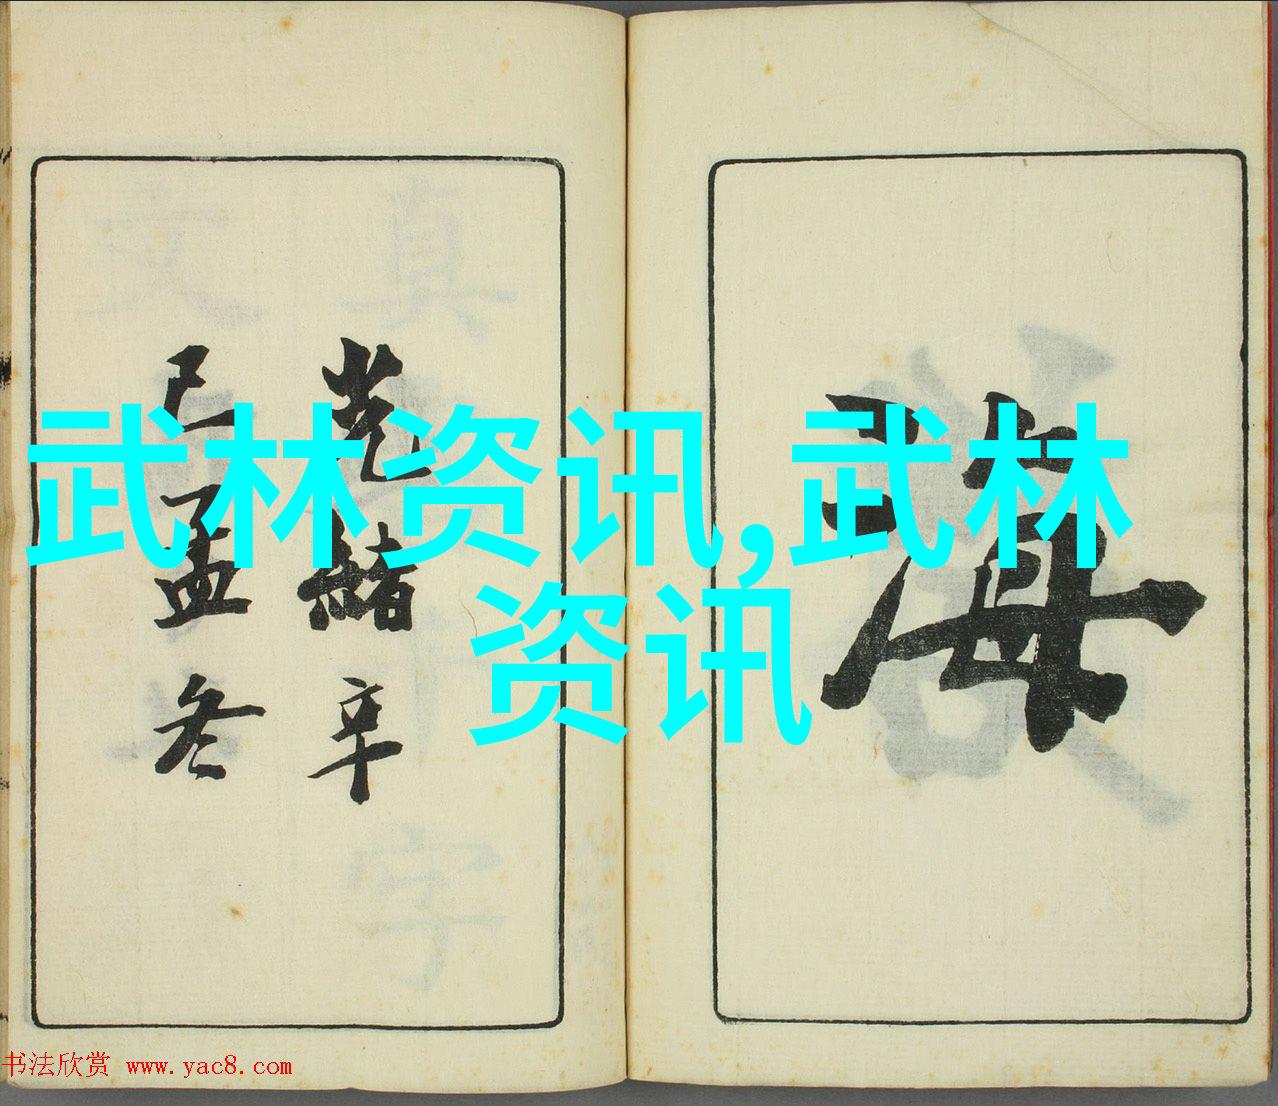 武林资讯,武林
资讯
海
光緒辛
巳孟冬
书法欣赏 www.yac8.com